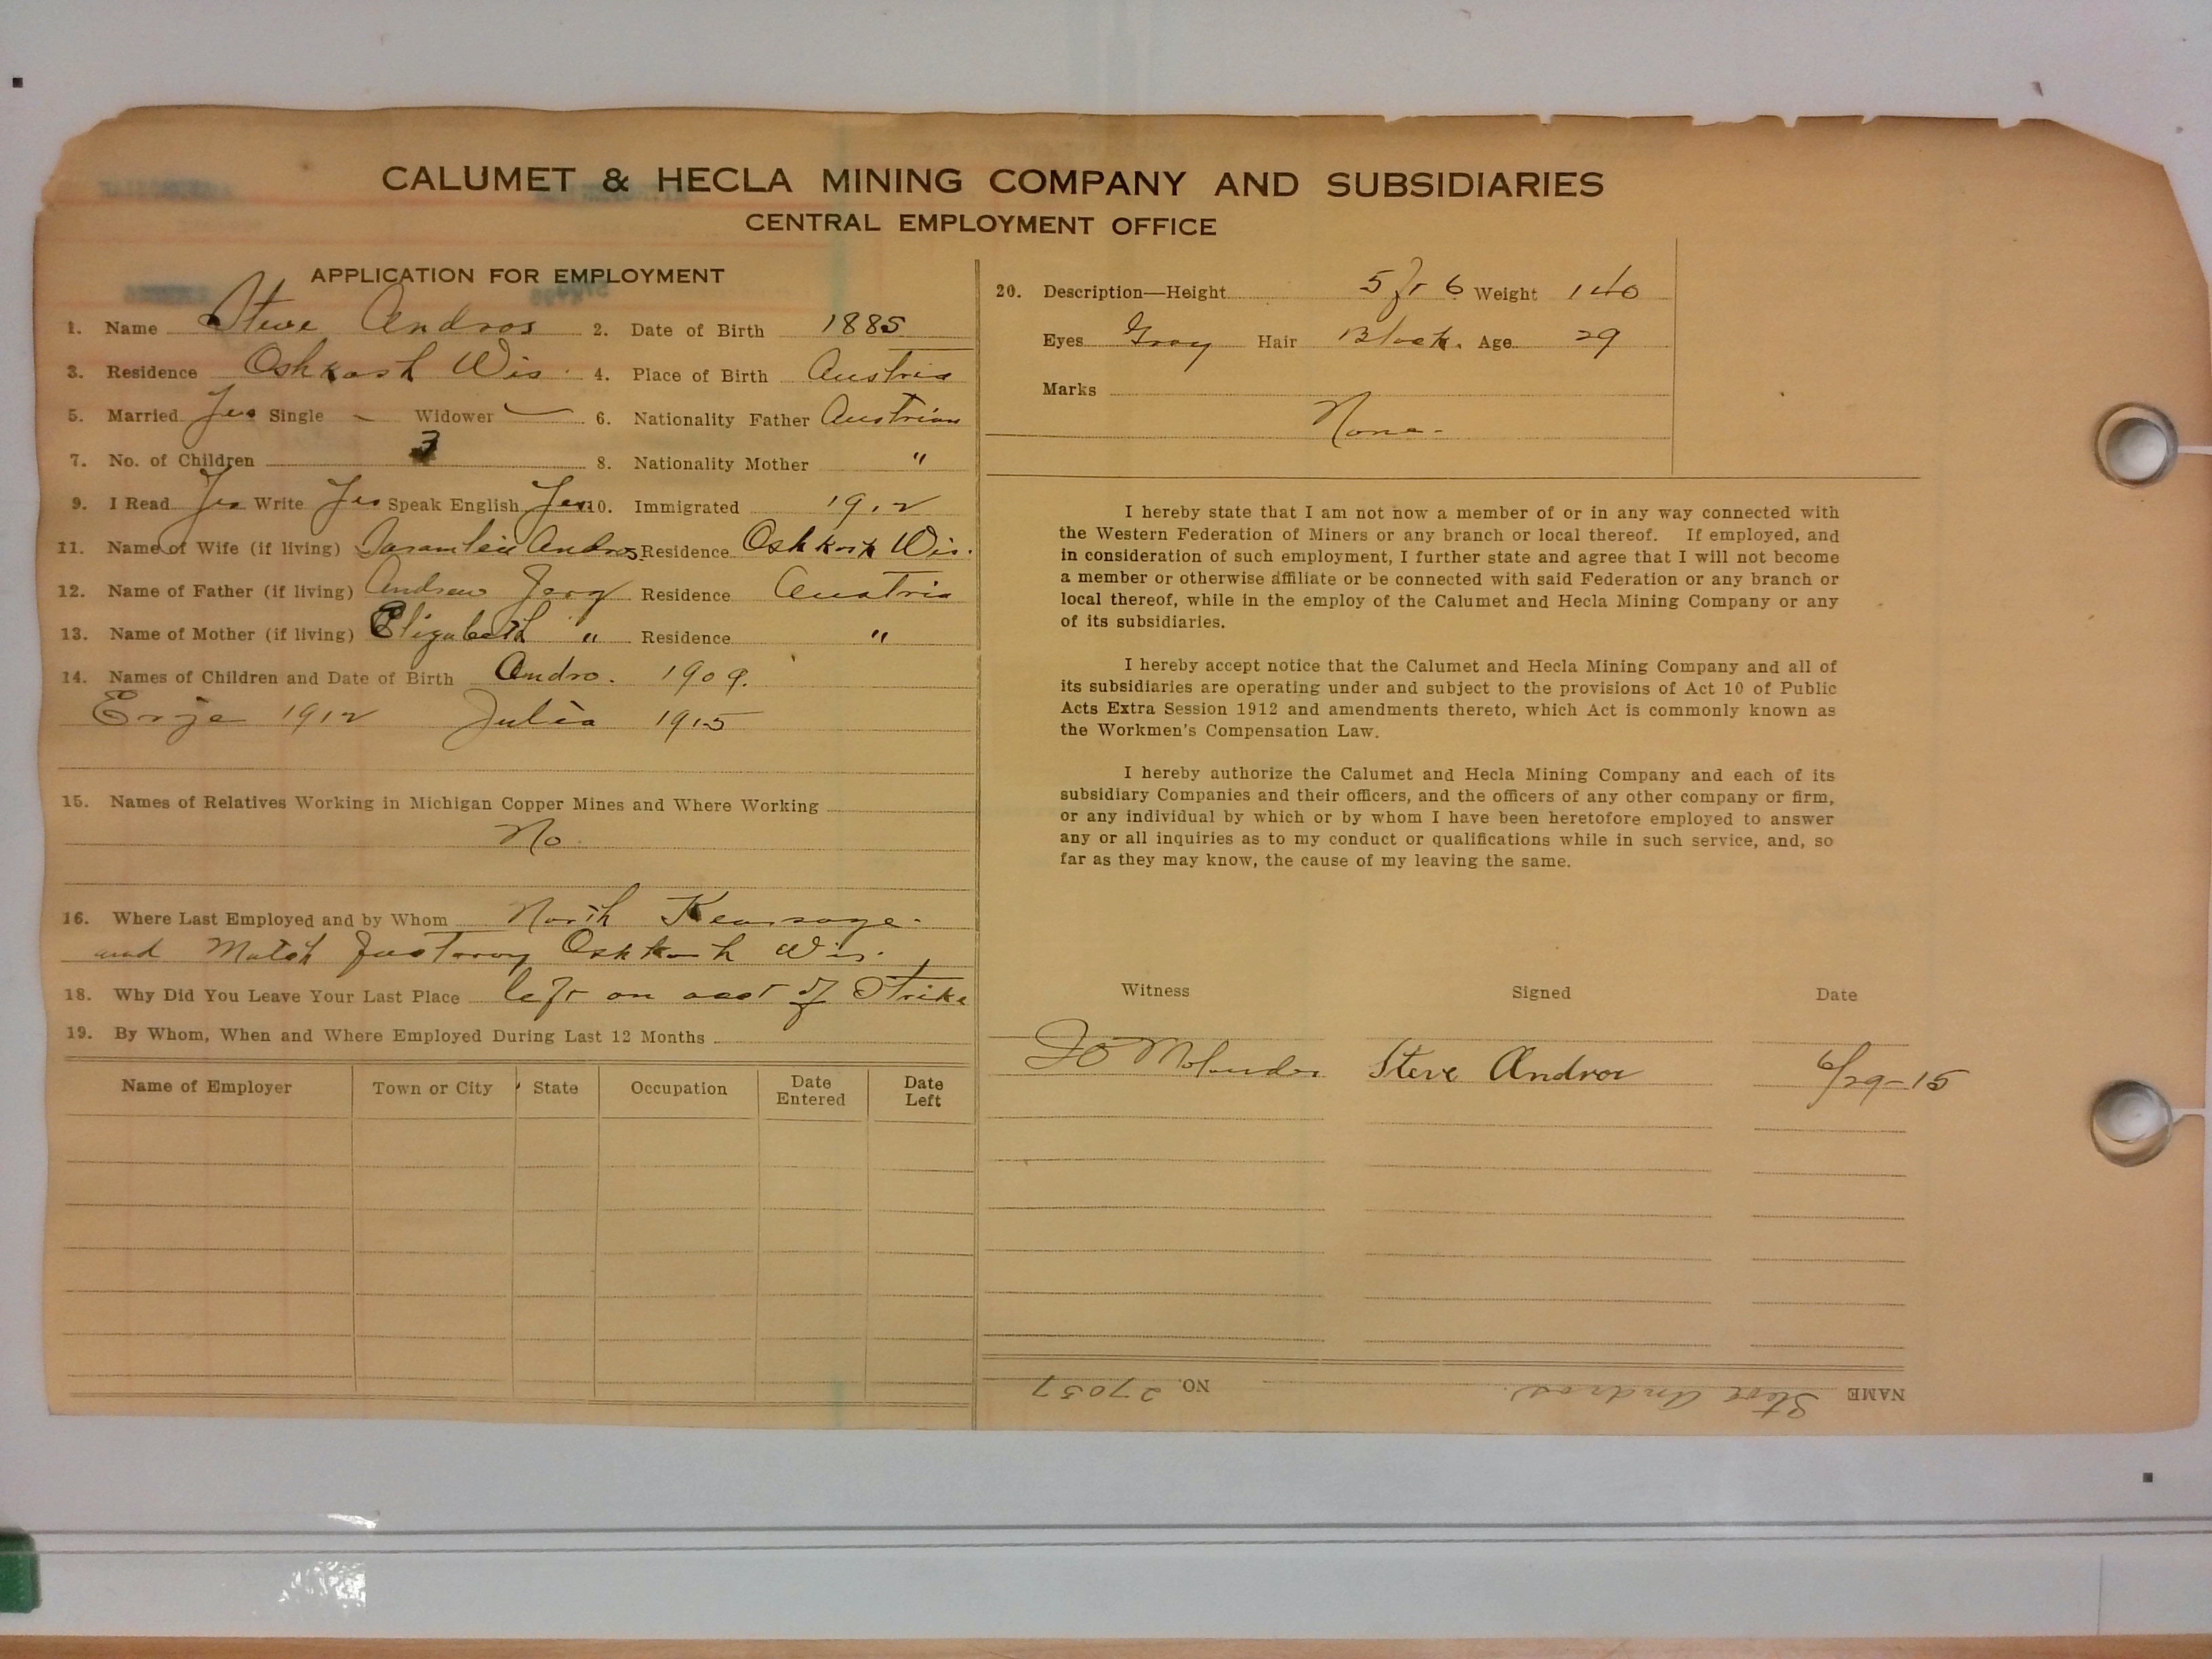 CALUMET & HECLA MINING COMPANY AND SUBSIDIARIES
CENTRAL EMPLOYMENT OFFICE
APPLICATION FOR EMPLOYMENT
1. Name Steve Andros 2. Date of Birth 1885
3. Residence Oshkosh Wis. 4. Place of Birth Austria
5. Married Yes Single — Widower — 6. Nationality Father Austrian
7. No. of Children 3 8. Nationality Mother "
9. I Read Yes Write Yes Speak English Yes 10. Immigrated 1912
11. Name of Wife (if living) Andros Residence Oshkosh Wis.
12. Name of Father (if living) Andrew Residence Austria
13. Name of Mother (if living) Elizabeth " Residence "
14. Names of Children and Date of Birth Andro. 1909.
1912 Julia 1915
15. Names of Relatives Working in Michigan Copper Mines and Where Working
No.
16. Where Last Employed and by Whom North Kearsage.
and Match Factory Oshkosh Wis.
18. Why Did You Leave Your Last Place left on acct of Strike
19. By Whom, When and Where Employed During Last 12 Months
Name of Employer Town or City State Occupation Date Entered Date Left
20. Description—Height 5 ft 6 Weight 140
Eyes Gray Hair Black. Age 29
Marks
None.
I hereby state that I am not now a member of or in any way connected with
the Western Federation of Miners or any branch or local thereof. If employed, and
in consideration of such employment, I further state and agree that I will not become
a member or otherwise affiliate or be connected with said Federation or any branch or
local thereof, while in the employ of the Calumet and Hecla Mining Company or any
of its subsidiaries.
I hereby accept notice that the Calumet and Hecla Mining Company and all of
its subsidiaries are operating under and subject to the provisions of Act 10 of Public
Acts Extra Session 1912 and amendments thereto, which Act is commonly known as
the Workmen's Compensation Law.
I hereby authorize the Calumet and Hecla Mining Company and each of its
subsidiary Companies and their officers, and the officers of any other company or firm,
or any individual by which or by whom I have been heretofore employed to answer
any or all inquiries as to my conduct or qualifications while in such service, and, so
far as they may know, the cause of my leaving the same.
Witness Signed Date
Molander Steve Andros 6/29-15
NAME Steve Andros. NO. 27057